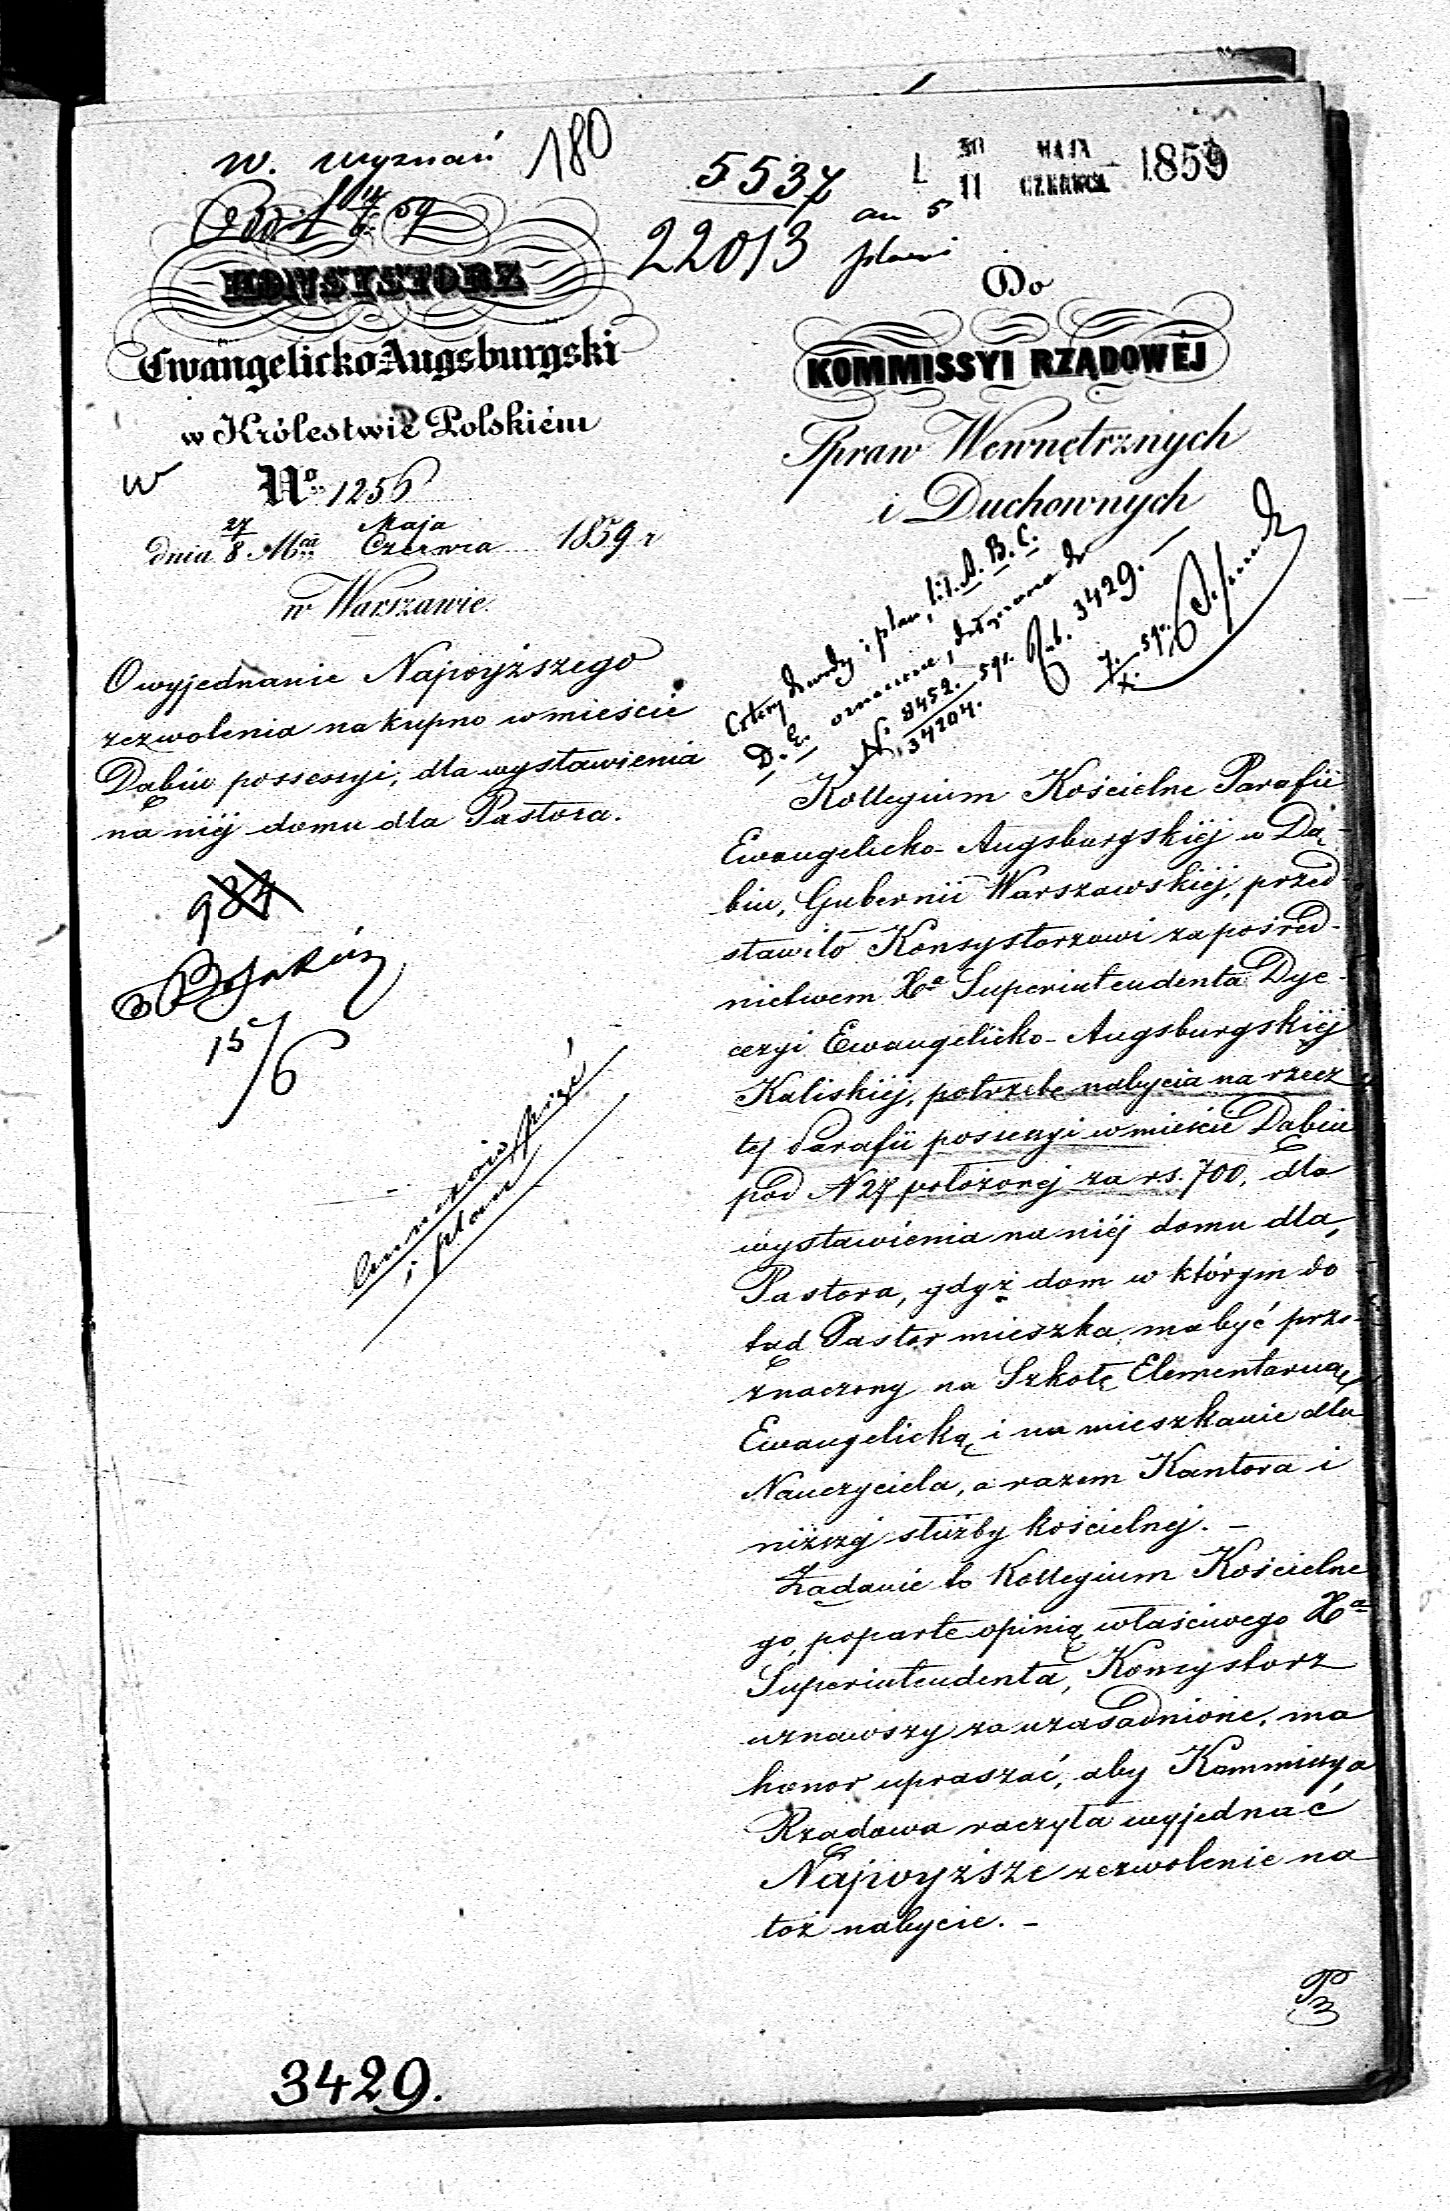 W. Wyznań
180
5537
22013
an 5
plan
L 30 MAJA 1859
11 CZERWCA
KONSYSTORZ
Ewangelicko Augsburgski
w Królestwie Polskiém
w
No 1256
dnia 27/8 Mca Maja/Czerwca 1859 r
w Warszawie.
O wyjednanie Najwyższego
zezwolenia na kupno w mieście
Dąbiu possessyi, dla wystawienia
na niéj domu dla Pastora.
984
15/6
i plan
3429.
Do
KOMMISSYI RZĄDOWÉJ
Spraw Wewnętrznych
i Duchownych
Cztery dowody i plan, lit. A. B. C.
D. E. oznaczone, dołączono do
N. 8452/34204. 59r. Rub. 3429. —
Kollegium Kościelne Parafii
Ewangelicko-Augsburgskiéj w Dą-
biu, Gubernii Warszawskiéj, przed-
stawiło Konsystorzowi za pośred-
nictwem Xa Superintendenta Dye-
cezyi Ewangelicko-Augsburgskiéj
Kaliskiéj, potrzebę nabycia na rzecz
téj Parafii posessyi w mieście Dąbiu
pod N 27 położonéj za rs. 700, dla
wystawienia na niéj domu dla
Pastora, gdyż dom w którym do
tąd Pastor mieszka, ma być prze-
znaczony na Szkołę Elementarną
Ewangelicką i na mieszkanie dla
Nauczyciela, a razem Kantora i
niższéj służby kościelnéj. –
Żądanie to Kollegium Kościelne
go, poparte opinią właściwego Xa
Superintendenta, Konsystorz
uznawszy za uzasadnione, ma
honor upraszać, aby Kommissya
Rządowa raczyła wyjednać
Najwyższe zezwolenie na
toż nabycie. –